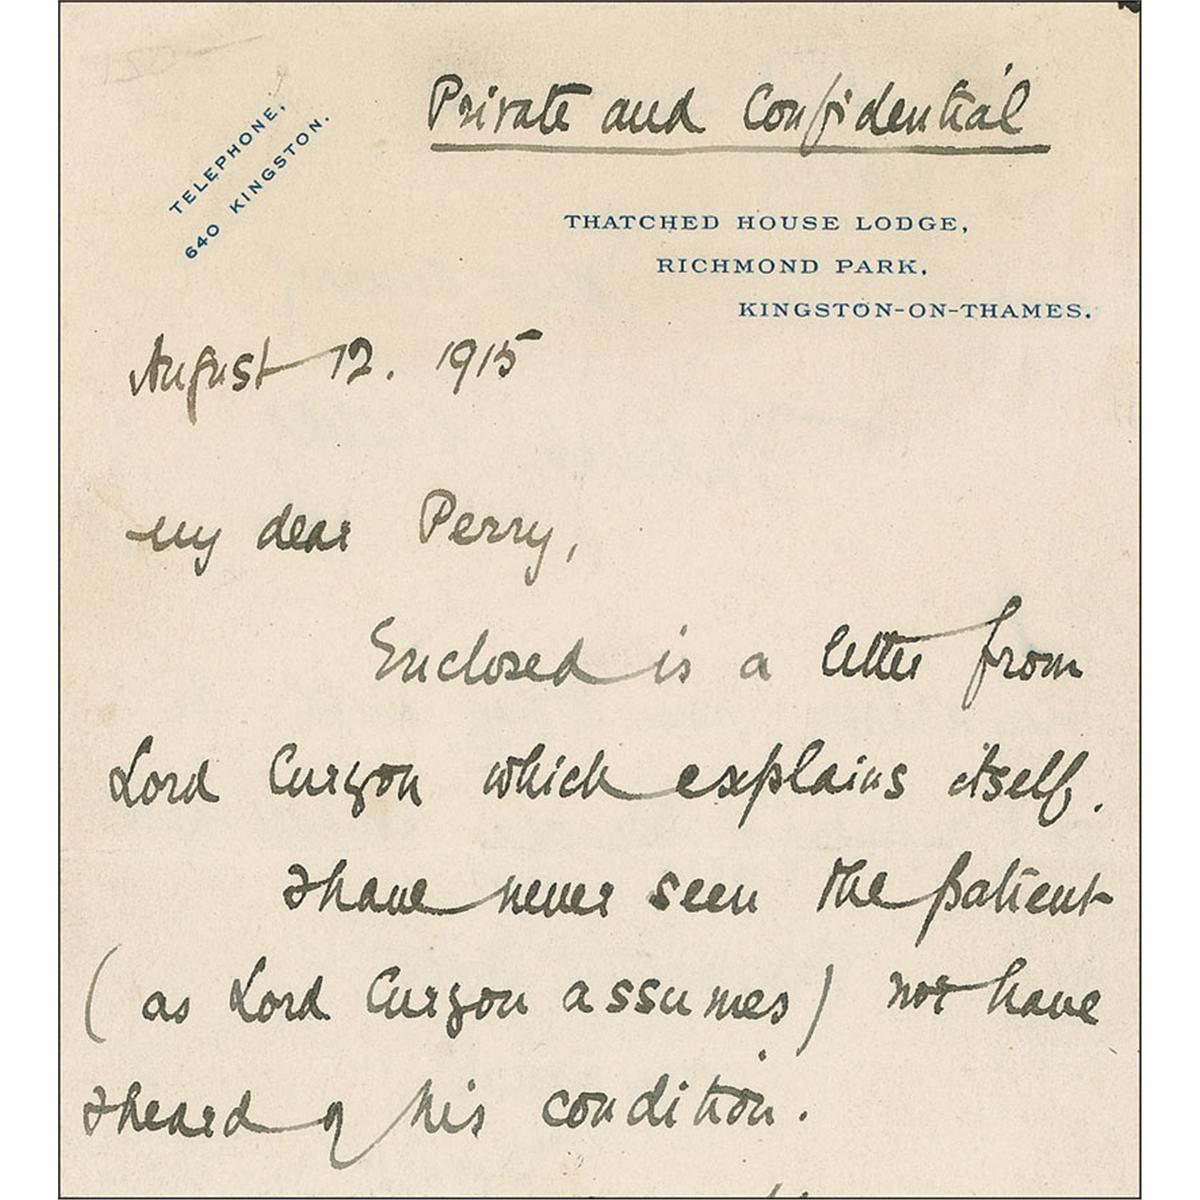 Private and Confidential
TELEPHONE,
640 KINGSTON.
THATCHED HOUSE LODGE,
RICHMOND PARK,
KINGSTON-ON-THAMES.
August 12. 1915
My dear Perry,
Enclosed is a letter from
Lord Curzon which explains itself.
I have never seen the patient
(as Lord Curzon assumes) nor have
I heard of his condition.